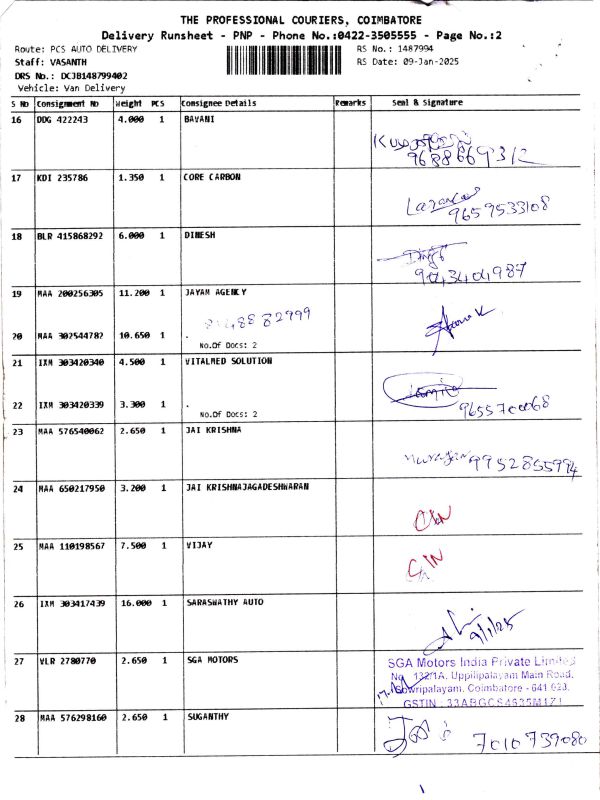 THE PROFESSIONAL COURIERS, COIMBATORE
Delivery Runsheet - PNP - Phone No.:0422-3505555 - Page No.:2
Route: PCS AUTO DELIVERY
RS No.: 1487994
Staff: VASANTH
RS Date: 09-Jan-2025
DRS No.: DCJB148799402
Vehicle: Van Delivery
S No Consignment No Weight PCS Consignee Details Remarks Seal & Signature
16 DDG 422243 4.000 1 BAVANI
17 KDI 235786 1.350 1 CORE CARBON
9659533108
18 BLR 415868292 6.000 1 DINESH
9043404987
19 MAA 200256305 11.200 1 JAYAM AGENCY
20 MAA 302544782 10.650 1 .
No.Of Docs: 2
21 IXM 303420340 4.500 1 VITALMED SOLUTION
9655700068
22 IXM 303420339 3.300 1 .
No.Of Docs: 2
23 MAA 576540062 2.650 1 JAI KRISHNA
9952855994
24 MAA 650217950 3.200 1 JAI KRISHNAJAGADESHWARAN
25 MAA 110198567 7.500 1 VIJAY
26 IXM 303417439 16.000 1 SARASWATHY AUTO
9/1/25
27 VLR 2780770 2.650 1 SGA MOTORS
SGA Motors India Private Limited
No. 132/1A, Uppilipalayam Main Road,
Sowripalayam, Coimbatore - 641 028.
GSTIN : 33ABGCS4635M1Z1
28 MAA 576298160 2.650 1 SUGANTHY
7010739080